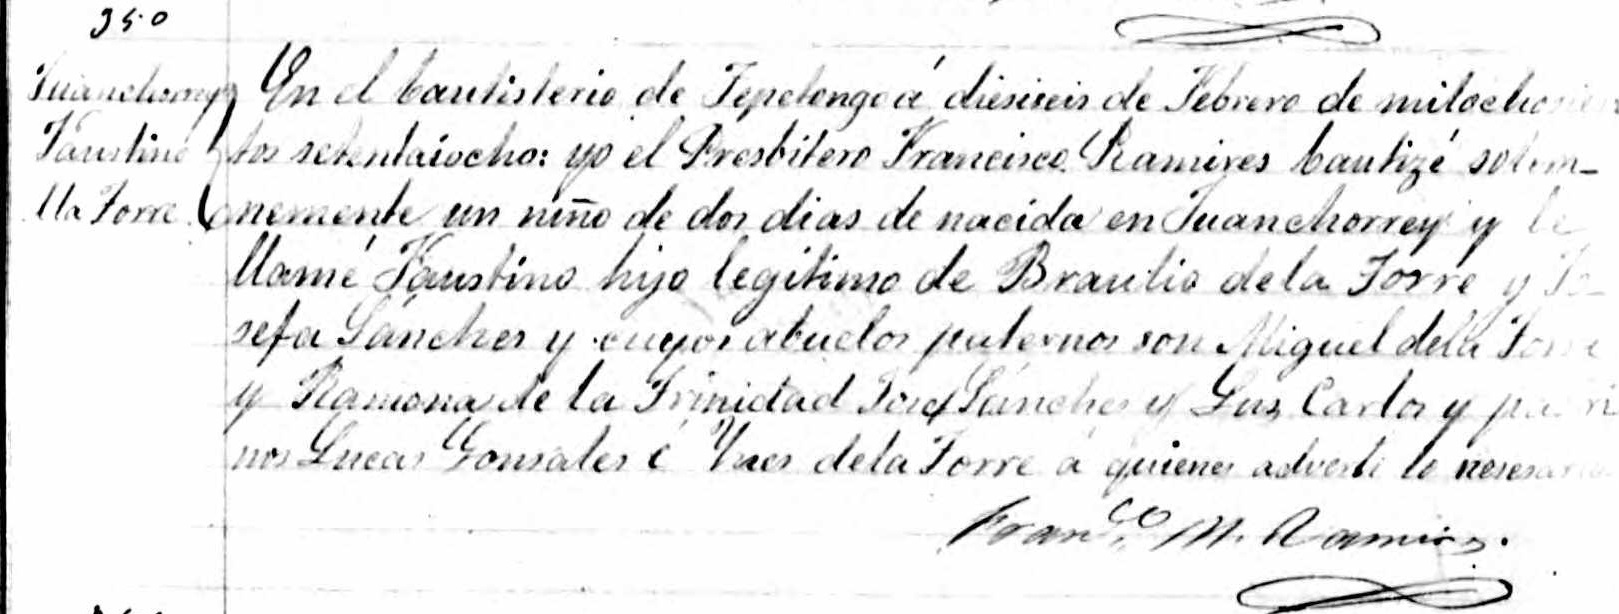 350
Juanchorrey
Faustino
lla Torre
En el bautisterio de Tepetongo á diesiseis de Febrero de milochosien
tos setentaiocho: yo el Presbitero Francisco Ramires bautizé solem-
nemente un niño de dos dias de nacida en Juanchorrey y le
llamé Faustino hijo legitimo de Braulio dela Torre y Jo-
sefa Sánches y cuyos abuelos paternos son Miguel dela Torre
y Ramona de la Trinidad José Sánches y Lus Carlos y padri
nos Lucas Gonsales é Ynes dela Torre á quienes adverti lo nesesario
Franco. M. Ramires.